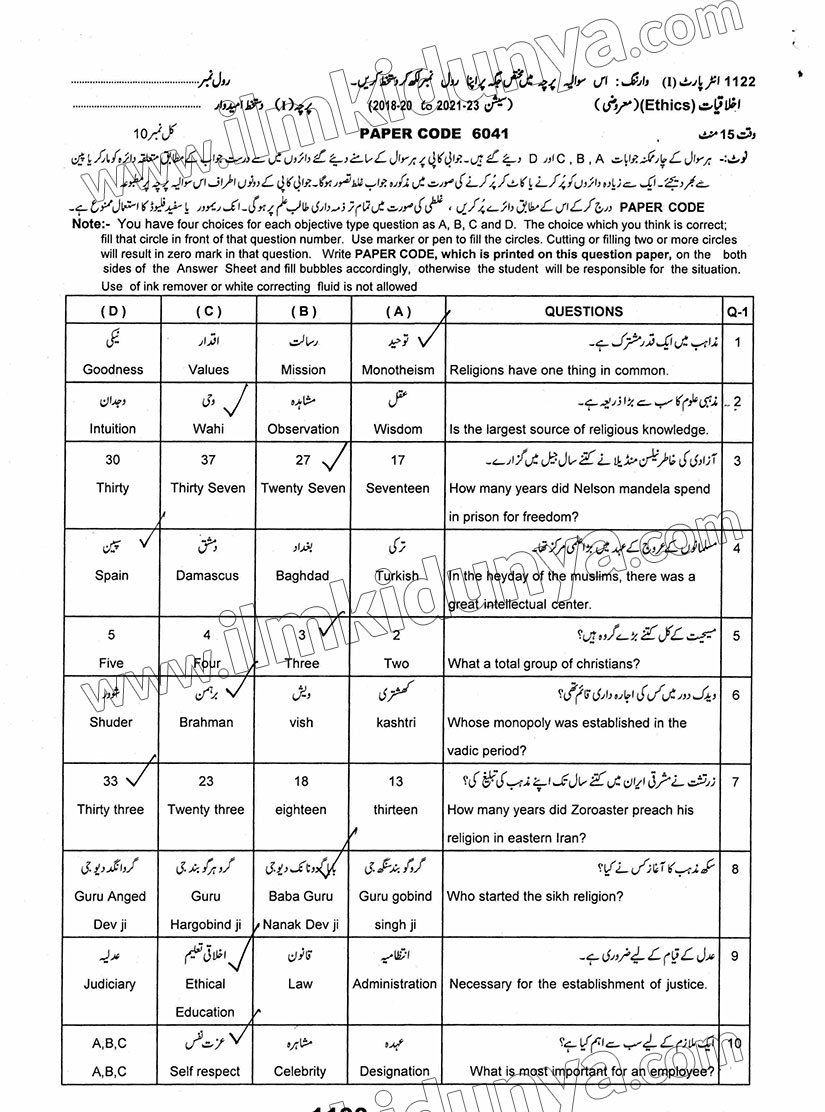 1122 انٹر پارٹ (I) وارننگ: اس سوالیہ پرچہ میں مختص جگہ پر اپنا رول نمبر لکھ کر دستخط کریں۔ رول نمبر
اخلاقیات (Ethics) (معروضی) (سیشن 2018-20 to 2021-23) پرچہ (I) دستخط امیدوار
وقت 15 منٹ PAPER CODE 6041 کل نمبر 10
نوٹ:- ہر سوال کے چار ممکنہ جوابات A , B , C اور D دیئے گئے ہیں۔ جوابی کاپی پر ہر سوال کے سامنے دیئے گئے دائروں میں سے درست جواب کے مطابق متعلقہ دائرہ کو مارکر یا پین
سے بھر دیجئے۔ ایک سے زیادہ دائروں کو پُر کرنے یا کاٹ کر پُر کرنے کی صورت میں مذکورہ جواب غلط تصور ہوگا۔ جوابی کاپی کے دونوں اطراف اس سوالیہ پرچہ پر مطبوعہ
PAPER CODE درج کر کے اس کے مطابق دائرے پُر کریں ، غلطی کی صورت میں تمام تر ذمہ داری طالب علم پر ہوگی۔ انک ریموور یا سفید فلیوڈ کا استعمال ممنوع ہے۔
Note:- You have four choices for each objective type question as A, B, C and D. The choice which you think is correct;
fill that circle in front of that question number. Use marker or pen to fill the circles. Cutting or filling two or more circles
will result in zero mark in that question. Write PAPER CODE, which is printed on this question paper, on the both
sides of the Answer Sheet and fill bubbles accordingly, otherwise the student will be responsible for the situation.
Use of ink remover or white correcting fluid is not allowed
( D ) ( C ) ( B ) ( A ) QUESTIONS Q-1
نیکی اقدار رسالت توحید مذاہب میں ایک قدر مشترک ہے۔ 1
Goodness Values Mission Monotheism Religions have one thing in common.
وجدان وحی مشاہدہ عقل مذہبی علوم کا سب سے بڑا ذریعہ ہے۔ 2
Intuition Wahi Observation Wisdom Is the largest source of religious knowledge.
30 37 27 17 آزادی کی خاطر نیلسن منڈیلا نے کتنے سال جیل میں گزارے۔ 3
Thirty Thirty Seven Twenty Seven Seventeen How many years did Nelson mandela spend
in prison for freedom?
سپین دمشق بغداد ترکی مسلمانوں کے عروج کے عہد میں بڑا علمی مرکز تھا۔ 4
Spain Damascus Baghdad Turkish In the heyday of the muslims, there was a
great intellectual center.
5 4 3 2 مسیحیت کے کل کتنے بڑے گروہ ہیں؟ 5
Five Four Three Two What a total group of christians?
شودر برہمن ویش کھشتری ویدک دور میں کس کی اجارہ داری قائم تھی؟ 6
Shuder Brahman vish kashtri Whose monopoly was established in the
vadic period?
33 23 18 13 زرتشت نے مشرقی ایران میں کتنے سال تک اپنے مذہب کی تبلیغ کی؟ 7
Thirty three Twenty three eighteen thirteen How many years did Zoroaster preach his
religion in eastern Iran?
گرو انگد دیو جی گرو ہرگوبند جی بابا گرو نانک دیو جی گرو گوبند سنگھ جی سکھ مذہب کا آغاز کس نے کیا؟ 8
Guru Anged Guru Baba Guru Guru gobind Who started the sikh religion?
Dev ji Hargobind ji Nanak Dev ji singh ji
عدلیہ اخلاقی تعلیم قانون انتظامیہ عدل کے قیام کے لیے ضروری ہے۔ 9
Judiciary Ethical Law Administration Necessary for the establishment of justice.
Education
A,B,C عزت نفس مشاہرہ عہدہ ایک ملازم کے لیے سب سے اہم کیا ہے؟ 10
A,B,C Self respect Celebrity Designation What is most important for an employee?
www.ilmkidunya.com
www.ilmkidunya.com
www.ilmkidunya.com